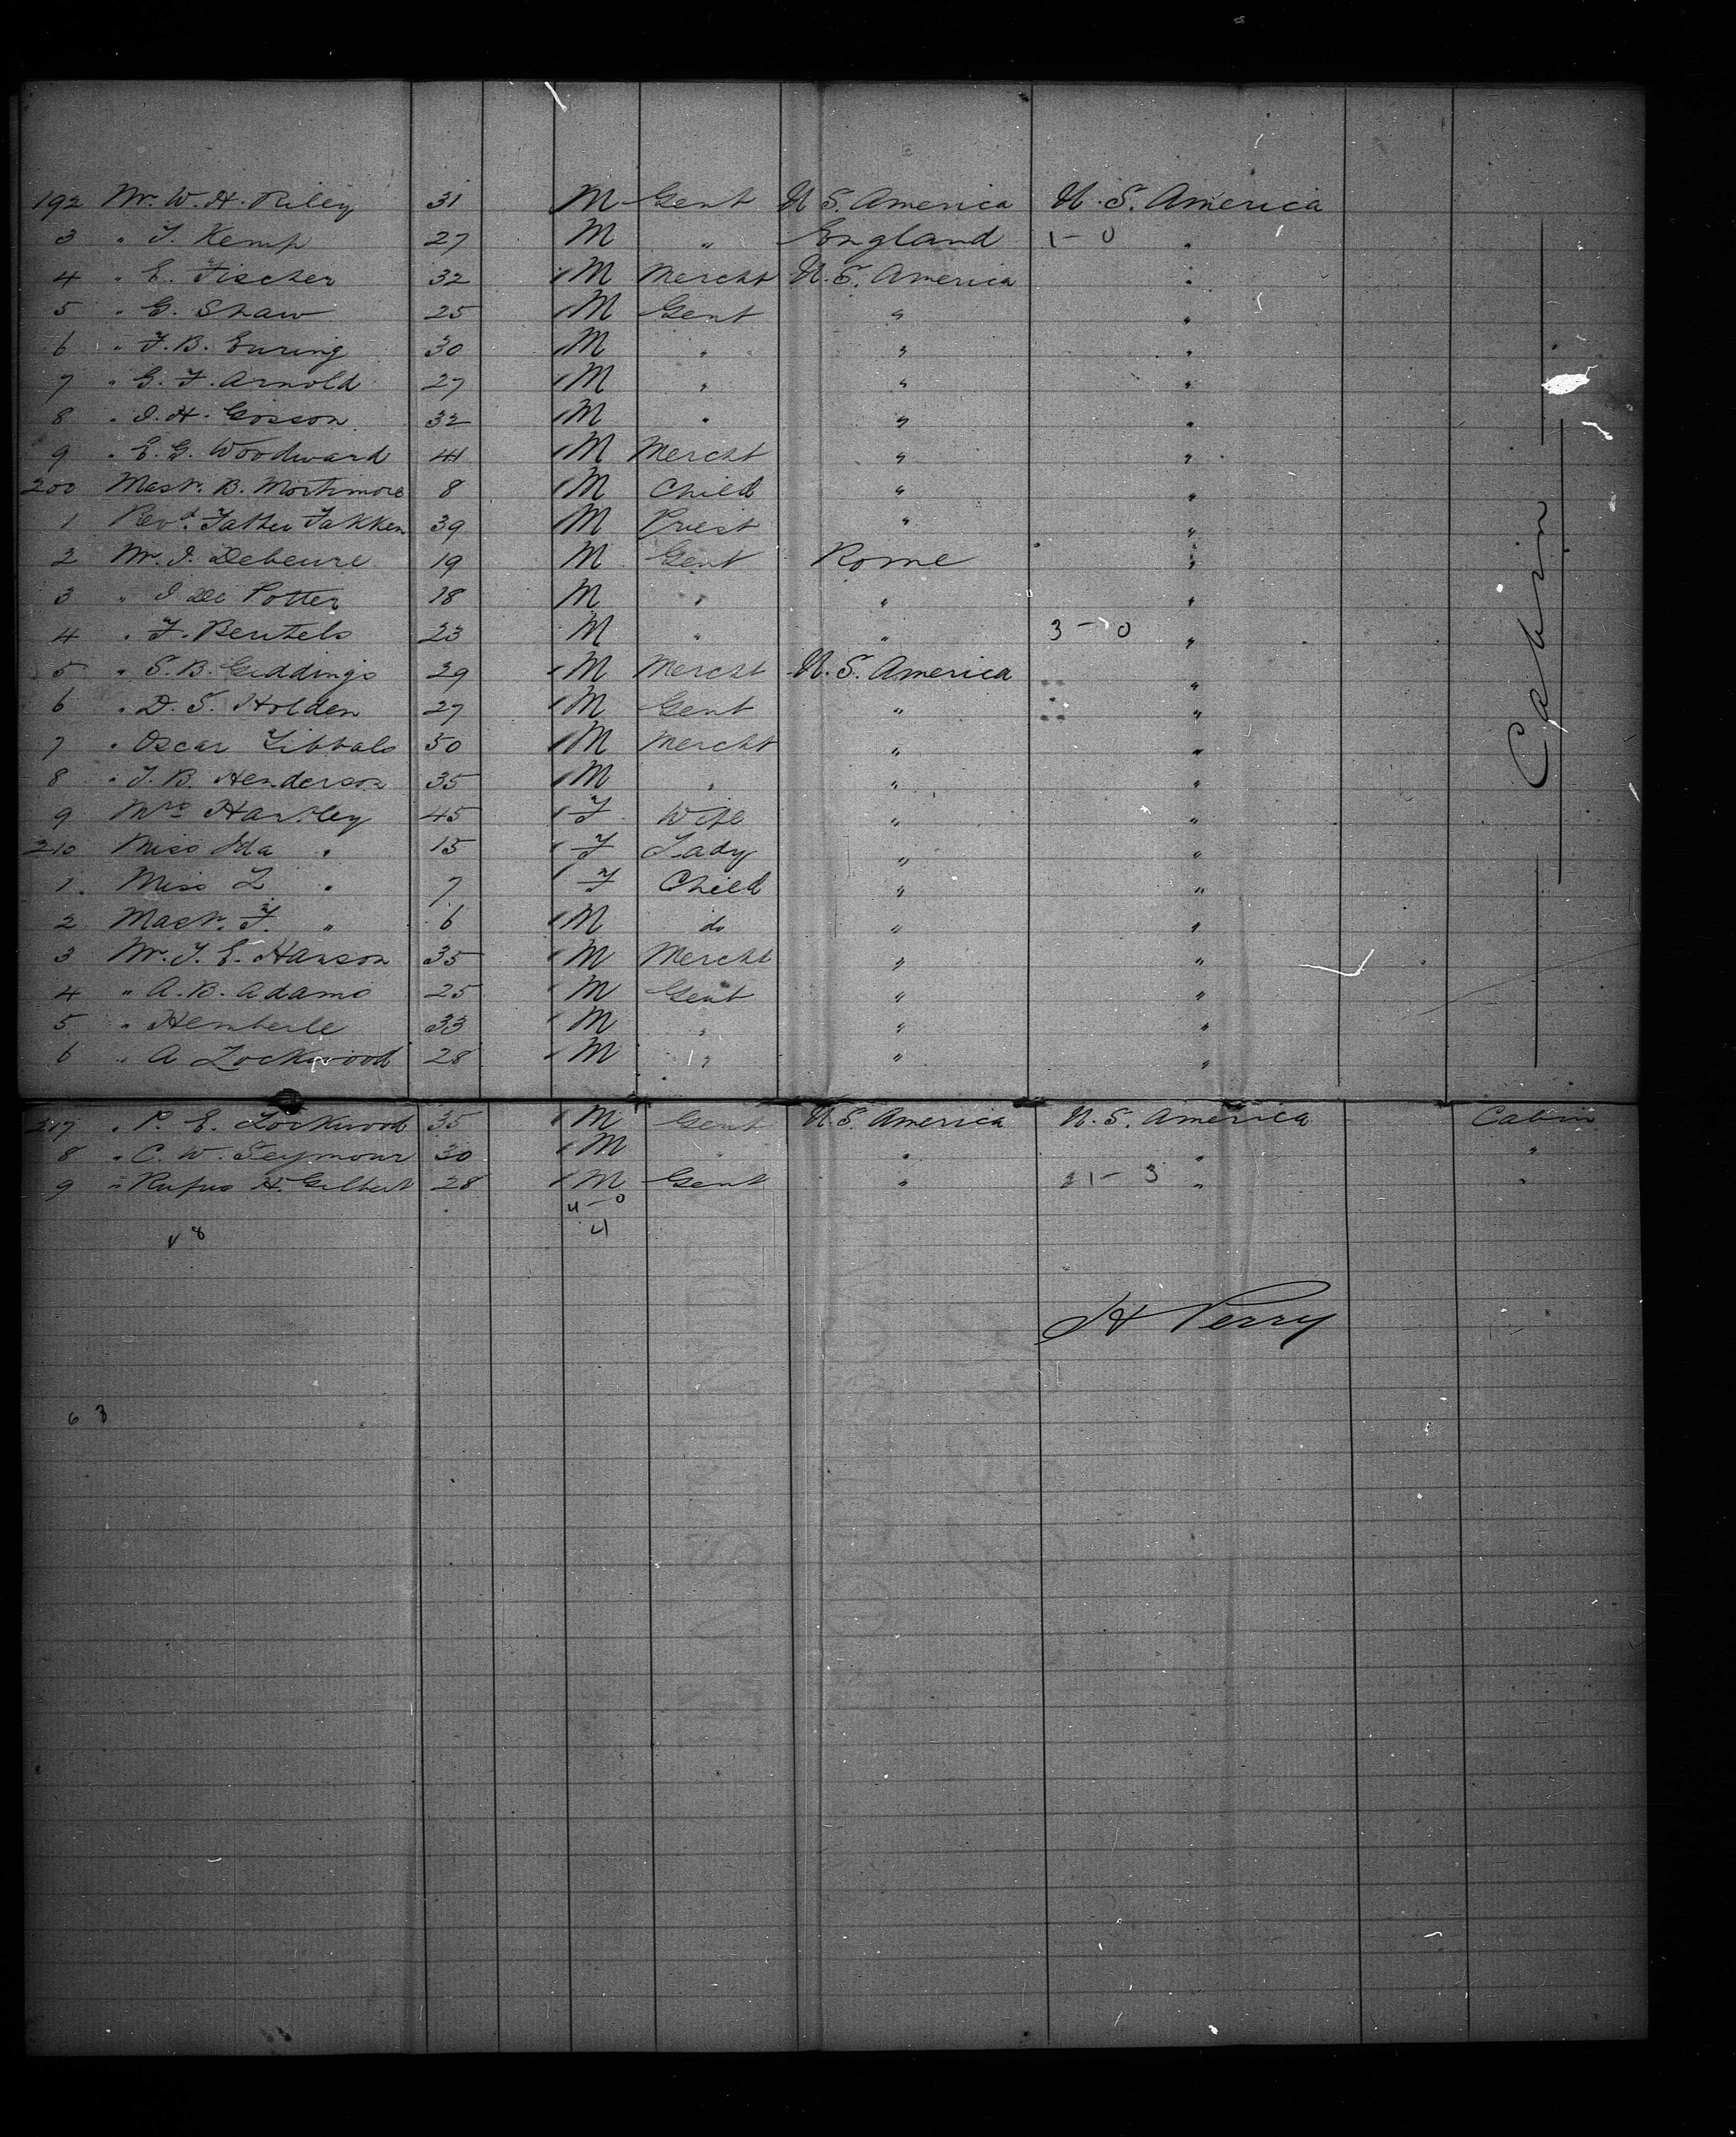 192 Mr. W. H. Riley 31 M Gent U. S. America U. S. America
3 " T. Kemp 27 M " England 1 - 0 "
4 " E. Fischer 32 M Mercht U. S. America "
5 " G. Shaw 25 M Gent " "
6 " F. B. Euring 30 M " " "
7 " G. F. Arnold 27 M " " "
8 " I. H. Gosson 32 M " " "
9 " E. G. Woodward 41 M Mercht " "
200 Mastr. B. Mortimore 8 M Child " "
1 Revd. Father Fakken 39 M Priest " "
2 Mr. I. Debeure 19 M Gent Rome "
3 " I De Potter 18 M " " "
4 " F. Beutels 23 M " " 3 - 0 "
5 " S. B. Giddings 29 M Mercht U. S. America "
6 " D. S. Holden 27 M Gent " "
7 " Oscar 50 M Mercht " "
8 " J. B. Henderson 35 M " " "
9 Mrs Hartley 45 F Wife " "
210 Miss Ida " 15 F Lady " "
1 Miss L " 7 F Child " "
2 Mastr. F. " 6 M do " "
3 Mr. J. E. Hanson 35 M Mercht " "
4 " A. B. Adams 25 M Gent " "
5 " Hemberle 33 M " " "
6 " A Lockwood 28 M " " "
Cabin
217 " P. E. Lockwood 35 M Gent U. S. America U. S. America Cabin
8 " C. W. Seymour 30 M " " " "
9 " Rufus H. Gilbert 28 M Gent " 21 - 3 " "
4 - 0
4
8
H Perry
6 3